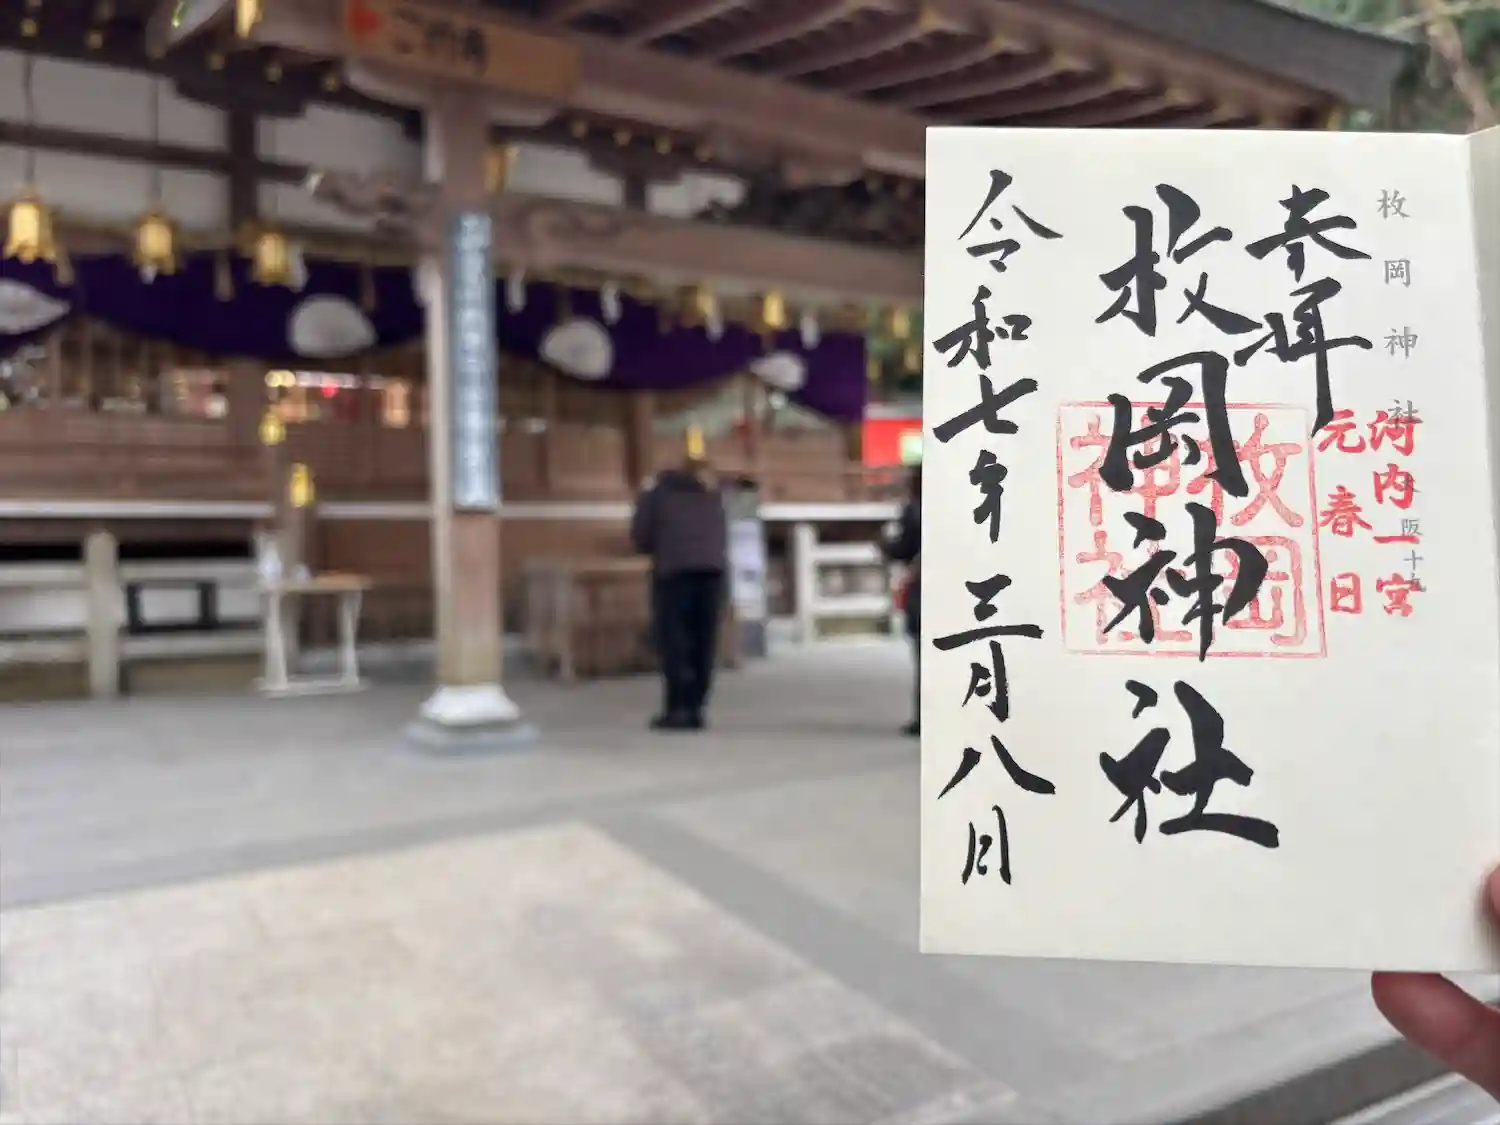 枚岡神社
河内一宮
元春日
参拝
枚岡神社
枚岡
神社
令和七年三月八日